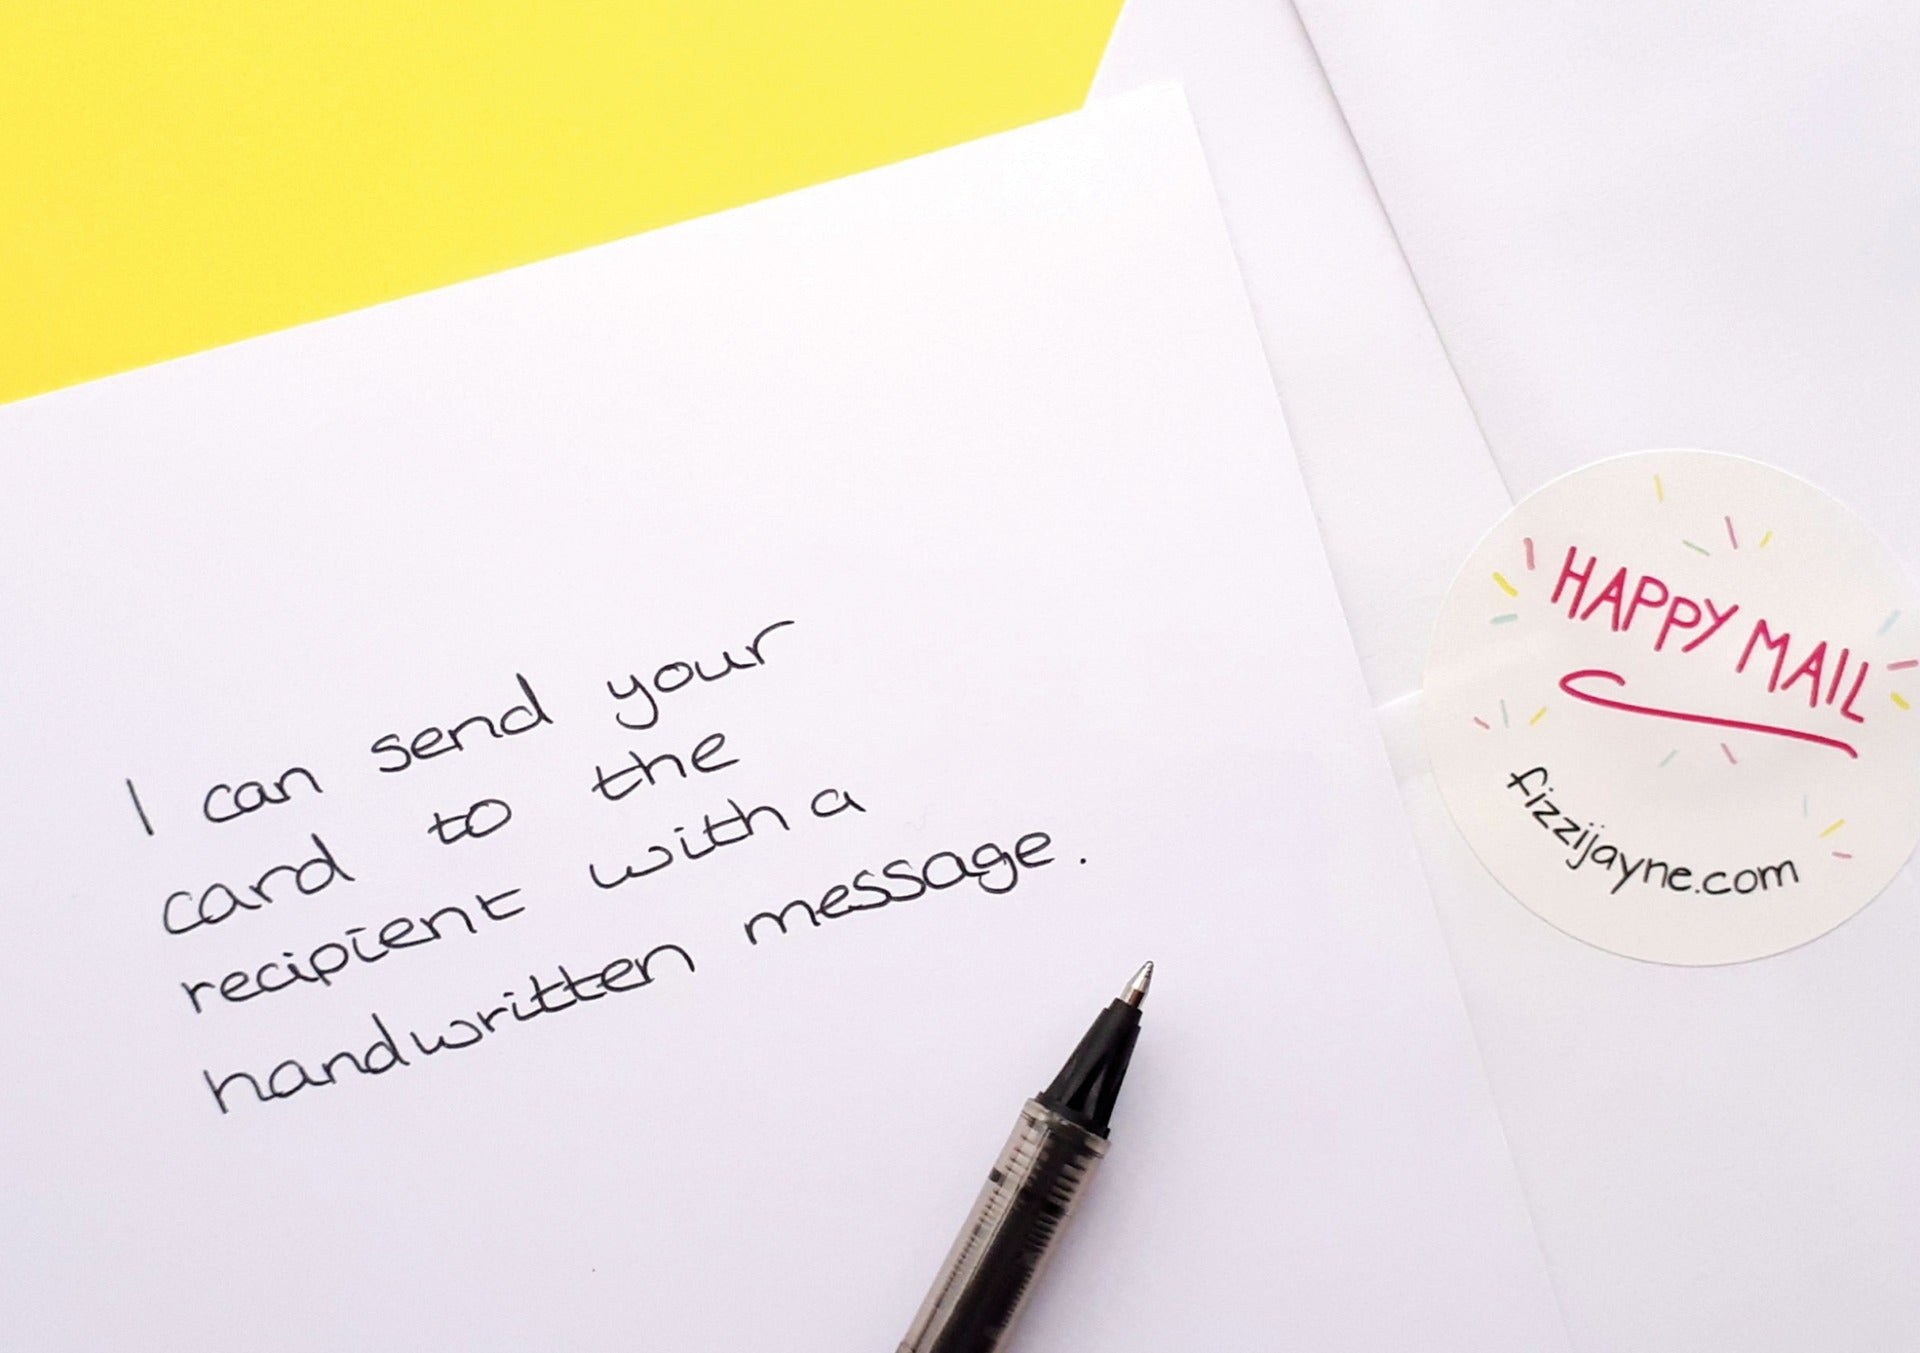 I can send your
card to the
recipient with a
handwritten message.
HAPPY MAIL
fizzijayne.com